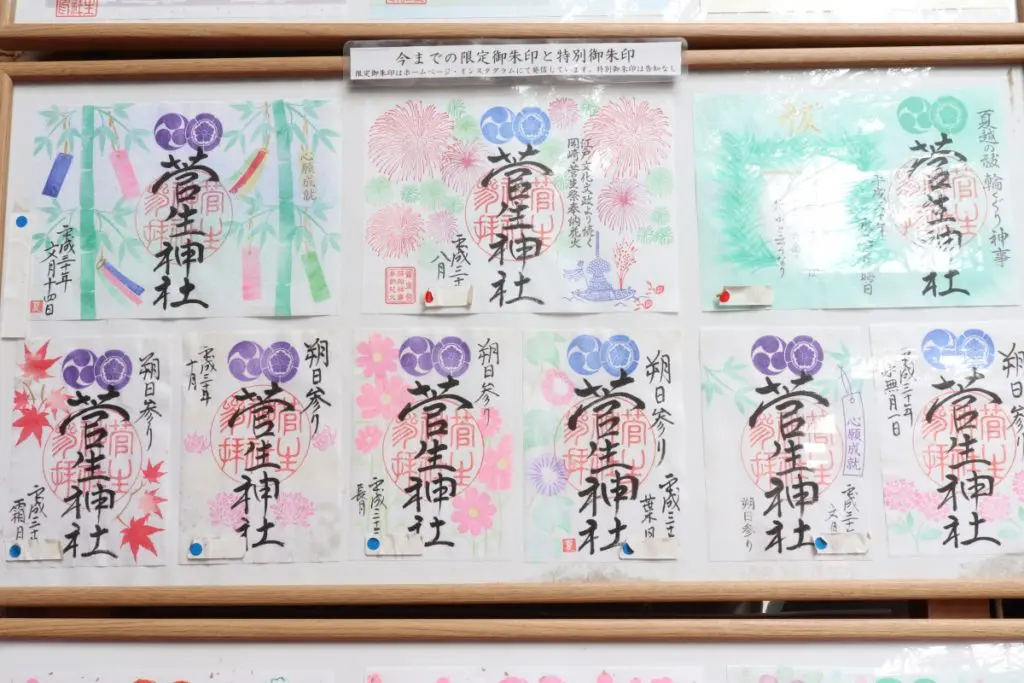 今までの限定御朱印と特別御朱印
限定御朱印はホームページ・インスタグラムにて発信しています。特別御朱印は告知なし
心願成就
菅生神社
平成三十年
文月十四日
江戸文化文政より続く
岡崎菅生祭奉納花火
菅生神社
平成三十
八月
夏越の祓 輪くぐり神事
菅生神社
朔日参り
菅生神社
平成三十
霜月
朔日参り
菅生神社
平成三十年
十月
朔日参り
菅生神社
平成三十
長月
朔日参り
菅生神社
平成三十
葉月
心願成就
菅生神社
平成三十
文月
朔日参り
朔日参り
菅生神社
平成三十年
水無月一日